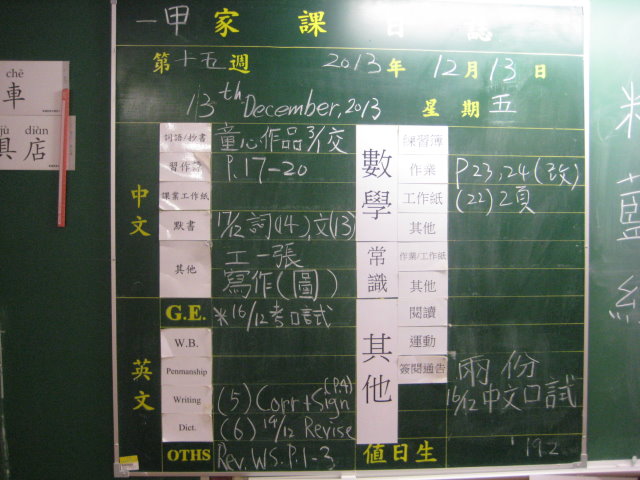 一甲家課日誌
第十五週 2013年12月13日
13th December, 2013 星期五
chē
車
jù diàn
具店
中文
詞語/抄書 童心作品3/1交
習作簿 P.17-20
課業工作紙
默書 17/12 詞(14),文(13)
其他 工一張
寫作(圖)
英文
G.E. *16/12考口試
W.B.
Penmanship
Writing (5) Corr+Sign (P.4)
Dict. (6) 19/12 Revise
OTHS Rev. WS. P.1-3
數學
練習簿
作業 P23,24(改)
工作紙 (22) 2頁
其他
常識
作業/工作紙
其他
其他
閱讀
運動
簽閱通告 兩份
16/12中文口試
值日生 19.2
藍